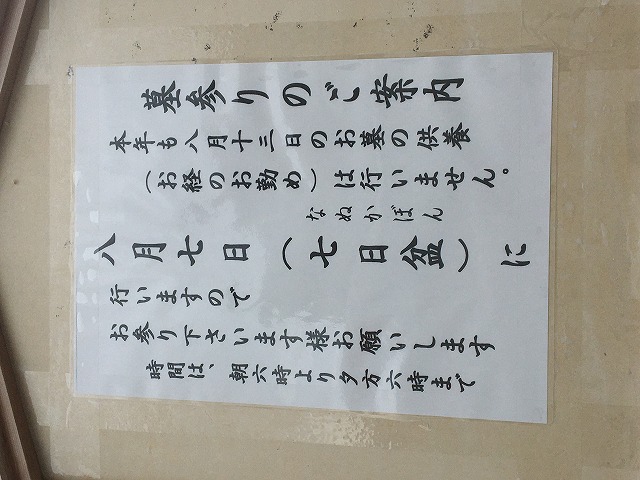 墓参りのご案内
本年も八月十三日のお墓の供養
(お経のお勤め)は行いません。
なぬかぼん
八月七日(七日盆)に
行いますので
お参り下さいます様お願いします
時間は、朝六時より夕方六時まで